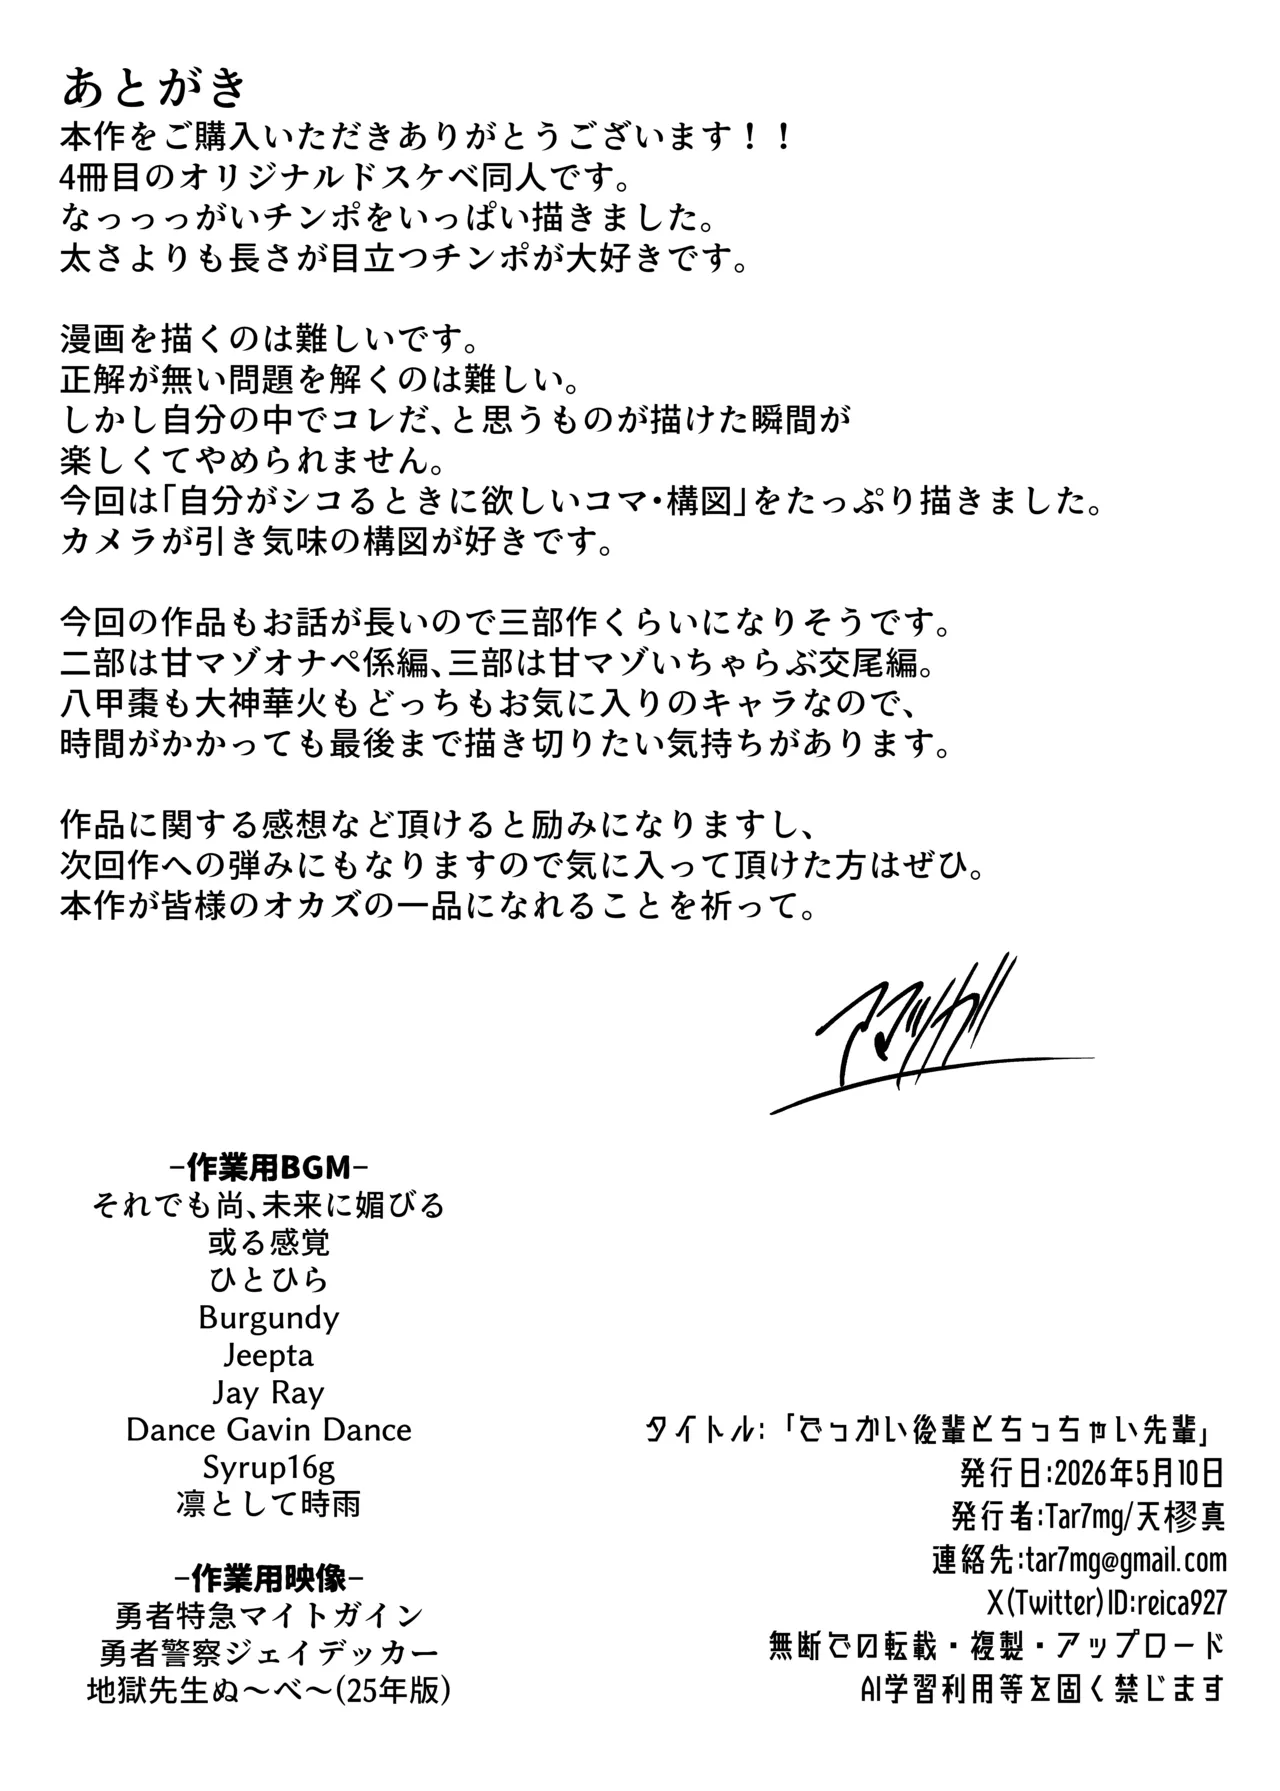 あとがき
本作をご購入いただきありがとうございます！！
4冊目のオリジナルドスケベ同人です。
なっっっがいチンポをいっぱい描きました。
太さよりも長さが目立つチンポが大好きです。
漫画を描くのは難しいです。
正解が無い問題を解くのは難しい。
しかし自分の中でコレだ、と思うものが描けた瞬間が
楽しくてやめられません。
今回は｢自分がシコるときに欲しいコマ・構図｣をたっぷり描きました。
カメラが引き気味の構図が好きです。
今回の作品もお話が長いので三部作くらいになりそうです。
二部は甘マゾオナペ係編、三部は甘マゾいちゃらぶ交尾編。
八甲棗も大神華火もどっちもお気に入りのキャラなので、
時間がかかっても最後まで描き切りたい気持ちがあります。
作品に関する感想など頂けると励みになりますし、
次回作への弾みにもなりますので気に入って頂けた方はぜひ。
本作が皆様のオカズの一品になれることを祈って。
-作業用BGM-
それでも尚、未来に媚びる
或る感覚
ひとひら
Burgundy
Jeepta
Jay Ray
Dance Gavin Dance
Syrup16g
凛として時雨
-作業用映像-
勇者特急マイトガイン
勇者警察ジェイデッカー
地獄先生ぬ〜べ〜(25年版)
タイトル:「でっかい後輩とちっちゃい先輩」
発行日:2026年5月10日
発行者:Tar7mg/天樛真
連絡先:tar7mg@gmail.com
X(Twitter)ID:reica927
無断での転載・複製・アップロード
AI学習利用等を固く禁じます